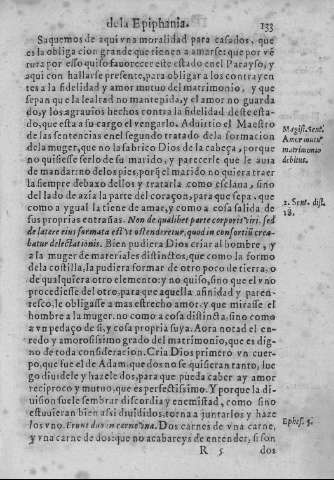 de la Epiphania. 133
Saquemos de aqui vna moralidad para casados, que
es la obligacion grande que tienen a amarse: que por vē
tura por esso quiso fauorecer este estado en el Parayso, y
aqui con hallarse presente, para obligar a los contrayen
tes a la fidelidad y amor mutuo del matrimonio, y que
sepan que la lealtad no mantenida, y el amor no guarda
do, y los agrauios hechos contra la fidelidad deste esta-
do, que esta a su cargo el vengarlo. Aduirtio el Maestro
de las sentencias en el segundo tratado de la formacion
de la muger, que no la fabrico Dios de la cabeça, porque
no quisiesse serlo de su marido, y parecerle que le auia
de mandar: no de los pies, porq̃ el marido no quiera traer
la siempre debaxo dellos y tratarla como esclaua, sino
del lado de azia la parte del coraçon, para que sepa, que
como a ygual la tiene de amar, y como a cosa salida de
sus proprias entrañas. Non de qualibet parte corporis viri, sed
de latere eius formata est, vt ostenderetur, quod in consortiũ crea-
batur delectationis. Bien pudiera Dios criar al hombre, y
a la muger de materiales distinctos, que como la formo
de la costilla, la pudiera formar de otro poco de tierra, o
de qualquiera otro elemento: y no quiso, sino que el vno
procediesse del otro, para que aquella afinidad y paren-
tesco, le obligasse a mas estrecho amor: y que mirasse el
hombre a la muger, no como a cosa distincta, sino como
a vn pedaço de si, y cosa propria suya. Aora notad el en-
redo y amorosissimo grado del matrimonio, que es dig-
no de toda consideracion. Cria Dios primero vn cuer-
po, que fue el de Adam, que dos no se quisieran tanto, lue
go diuidele y haze dos, para que pueda caber ay amor
reciproco y mutuo, que es perfectissimo. Y porque la di-
uision suele sembrar discordia y enemistad, como sino
estuuieran bien assi diuididos, torna a juntarlos y haze
los vno. Erunt duo in carne vna. Dos carnes de vna carne,
y vna carne de dos: que no acabareys de entender, si son
R 5 dos
Magist. Sent.
Amor mutuꝰ
matrimonio
debitus.
2. Sent. dist.
18.
Ephes. 5.